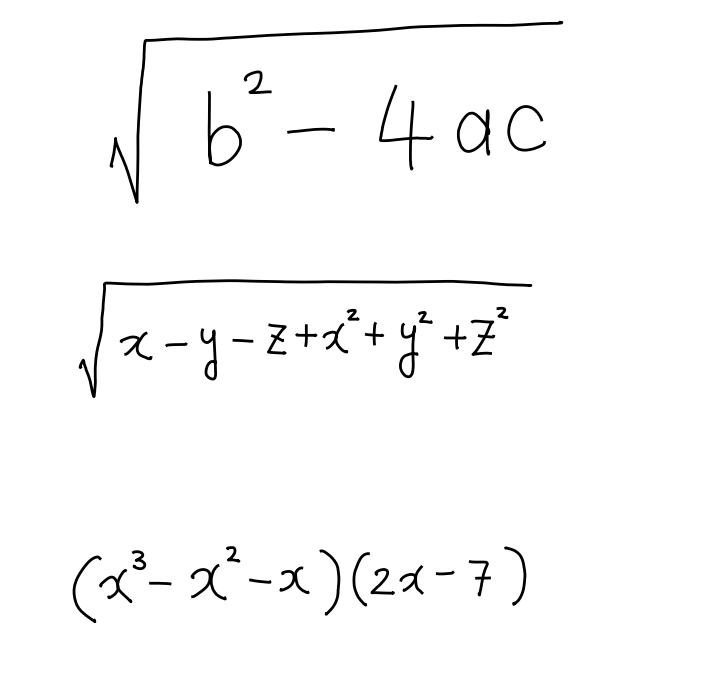 √(b² − 4ac)
√(x − y − z + x² + y² + z²)
(x³ − x² − x)(2x − 7)